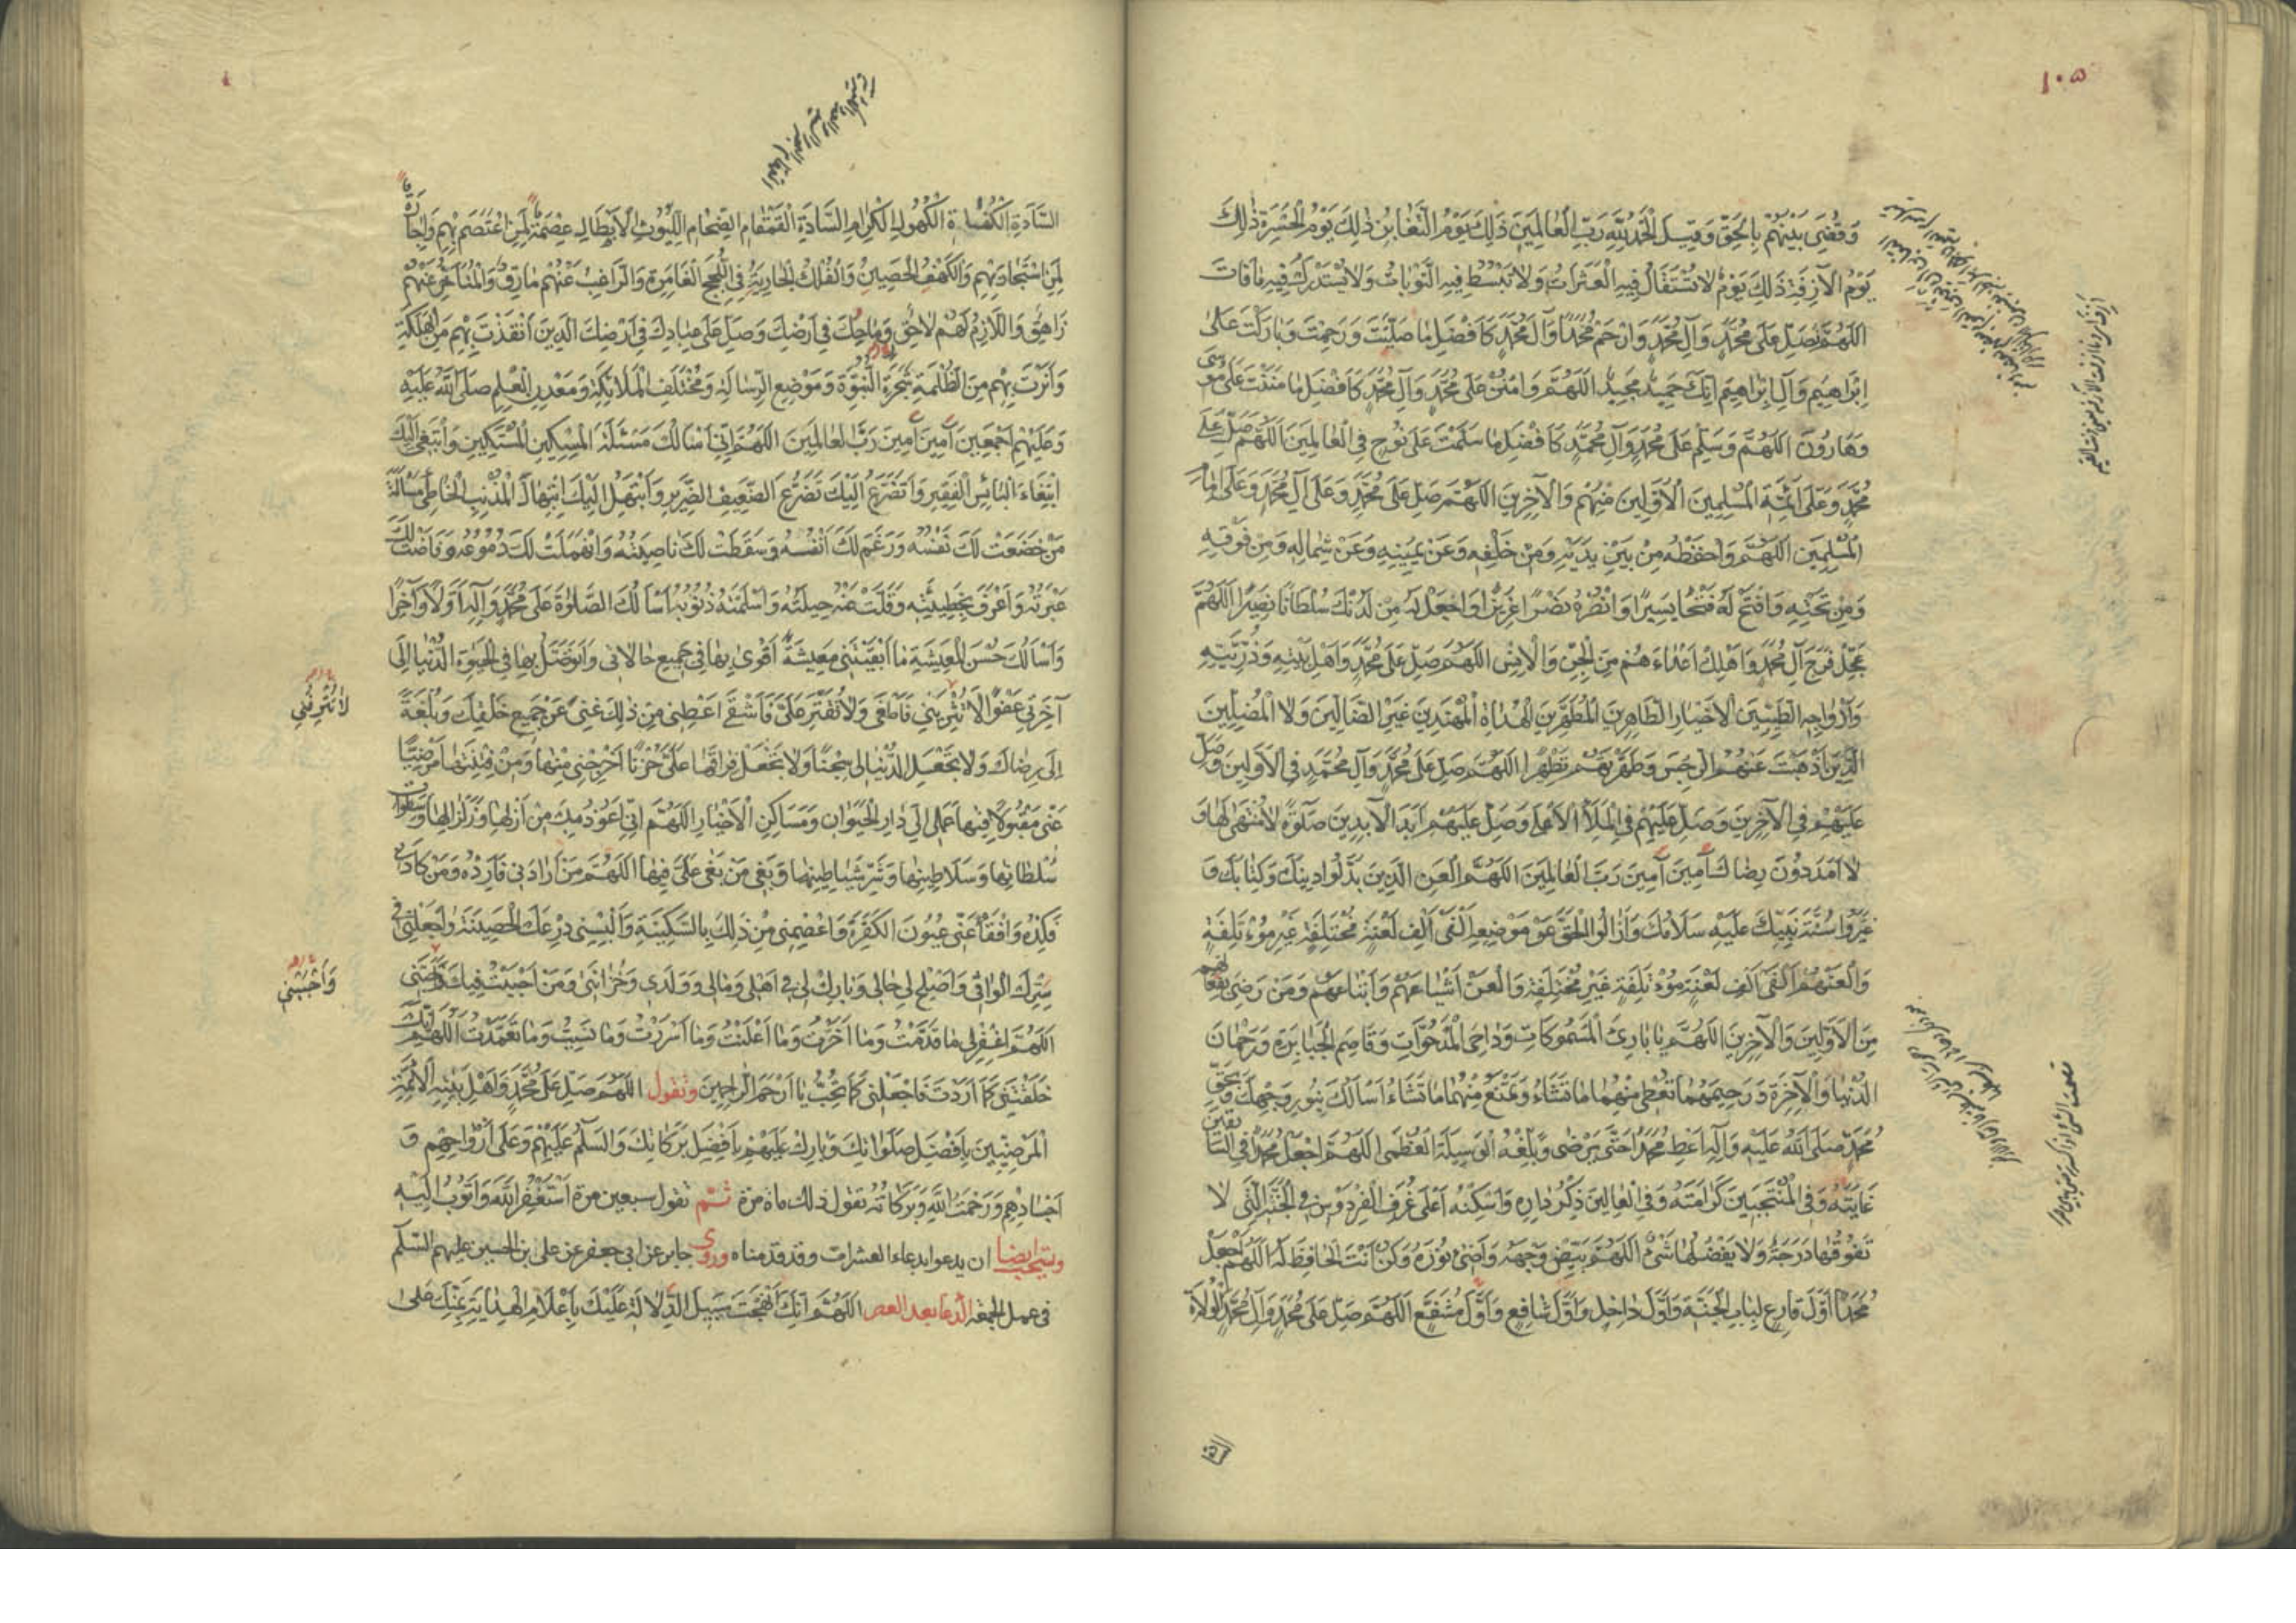 ١٠٥
وَقُضِيَ بَيْنَهُمْ بِالْحَقِّ وَقِيلَ الْحَمْدُ لِلّٰهِ رَبِّ الْعَالَمِينَ ذَلِكَ يَوْمُ التَّغَابُنِ ذٰلِكَ يَوْمُ الْحَسْرَةِ ذٰلِكَ
يَوْمُ الْآزِفَةِ ذَلِكَ يَوْمٌ لَا تُسْتَقَالُ فِيهِ الْعَثَرَاتُ وَلَا تُبْسَطُ فِيهِ التَّوْبَاتُ وَلَا يُسْتَدْرَكُ فِيهِ مَا فَاتَ
اللّٰهُمَّ فَصَلِّ عَلَى مُحَمَّدٍ وَآلِ مُحَمَّدٍ وَارْحَمْ مُحَمَّدًا وَآلَ مُحَمَّدٍ كَأَفْضَلِ مَا صَلَّيْتَ وَرَحِمْتَ وَبَارَكْتَ عَلَى
اِبْرَاهِيمَ وَآلِ اِبْرَاهِيمَ اِنَّكَ حَمِيدٌ مَجِيدٌ اللّٰهُمَّ وَامْنُنْ عَلَى مُحَمَّدٍ وَآلِ مُحَمَّدٍ كَأَفْضَلِ مَا مَنَنْتَ عَلَى مُوسَى
وَهَارُونَ اللّٰهُمَّ وَسَلِّمْ عَلَى مُحَمَّدٍ وَآلِ مُحَمَّدٍ كَأَفْضَلِ مَا سَلَّمْتَ عَلَى نُوحٍ فِي الْعَالَمِينَ اللّٰهُمَّ صَلِّ عَلَى
مُحَمَّدٍ وَعَلَى أَئِمَّةِ الْمُسْلِمِينَ الْأَوَّلِينَ مِنْهُمْ وَالْآخِرِينَ اللّٰهُمَّ صَلِّ عَلَى مُحَمَّدٍ وَعَلَى آلِ مُحَمَّدٍ وَعَلَى اِمَامِ
الْمُسْلِمِينَ اللّٰهُمَّ وَاحْفَظْهُ مِنْ بَيْنِ يَدَيْهِ وَمِنْ خَلْفِهِ وَعَنْ يَمِينِهِ وَعَنْ شِمَالِهِ وَمِنْ فَوْقِهِ
وَمِنْ تَحْتِهِ وَافْتَحْ لَهُ فَتْحًا يَسِيرًا وَانْصُرْهُ نَصْرًا عَزِيزًا وَاجْعَلْ لَهُ مِنْ لَدُنْكَ سُلْطَانًا نَصِيرًا اللّٰهُمَّ
عَجِّلْ فَرَجَ آلِ مُحَمَّدٍ وَأَهْلِكْ أَعْدَاءَهُمْ مِنَ الْجِنِّ وَالْاِنْسِ اللّٰهُمَّ صَلِّ عَلَى مُحَمَّدٍ وَأَهْلِ بَيْتِهِ وَذُرِّيَّتِهِ
وَأَزْوَاجِهِ الطَّيِّبِينَ الْأَخْيَارِ الطَّاهِرِينَ الْمُطَهَّرِينَ الْهُدَاةِ الْمُهْتَدِينَ غَيْرِ الضَّالِّينَ وَلَا الْمُضِلِّينَ
الَّذِينَ أَذْهَبْتَ عَنْهُمُ الرِّجْسَ وَطَهَّرْتَهُمْ تَطْهِيرًا اللّٰهُمَّ صَلِّ عَلَى مُحَمَّدٍ وَآلِ مُحَمَّدٍ فِي الْأَوَّلِينَ وَصَلِّ
عَلَيْهِمْ فِي الْآخِرِينَ وَصَلِّ عَلَيْهِمْ فِي الْمَلَأِ الْأَعْلَى وَصَلِّ عَلَيْهِمْ أَبَدَ الْآبِدِينَ صَلٰوةً لَا مُنْتَهَى لَهَا وَ
لَا أَمَدَ دُونَ رِضَاكَ آمِينَ آمِينَ رَبَّ الْعَالَمِينَ اللّٰهُمَّ الْعَنِ الَّذِينَ بَدَّلُوا دِينَكَ وَكِتَابَكَ وَ
غَيَّرُوا سُنَّةَ نَبِيِّكَ عَلَيْهِ سَلَامُكَ وَأَزَالُوا الْحَقَّ عَنْ مَوْضِعِهِ أَلْفَيْ أَلْفِ لَعْنَةٍ مُخْتَلِفَةٍ غَيْرِ مُؤْتَلِفَةٍ
وَالْعَنْهُمْ أَلْفَيْ أَلْفِ لَعْنَةٍ مُؤْتَلِفَةٍ غَيْرِ مُخْتَلِفَةٍ وَالْعَنْ أَشْيَاعَهُمْ وَأَتْبَاعَهُمْ وَمَنْ رَضِيَ بِفِعَالِهِمْ
مِنَ الْأَوَّلِينَ وَالْآخِرِينَ اللّٰهُمَّ يَا بَارِئَ الْمَسْمُوكَاتِ وَدَاحِيَ الْمَدْحُوَّاتِ وَقَاصِمَ الْجَبَابِرَةِ وَرَحْمَانَ
الدُّنْيَا وَالْآخِرَةِ وَرَحِيمَهُمَا تُعْطِي مِنْهُمَا مَا تَشَاءُ وَتَمْنَعُ مِنْهُمَا مَا تَشَاءُ أَسْأَلُكَ بِنُورِ وَجْهِكَ وَبِحَقِّ
مُحَمَّدٍ صَلَّى اللّٰهُ عَلَيْهِ وَآلِهِ أَعْطِ مُحَمَّدًا حَتَّى يَرْضَى وَبَلِّغْهُ الْوَسِيلَةَ الْعُظْمَى اللّٰهُمَّ اجْعَلْ مُحَمَّدًا فِي السَّابِقِينَ
غَايَتَهُ وَفِي الْمُنْتَجَبِينَ كَرَامَتَهُ وَفِي الْعَالَمِينَ ذِكْرَهُ وَأَسْكِنْهُ أَعْلَى غُرَفِ الْفِرْدَوْسِ فِي الْجَنَّةِ الَّتِي لَا
تَفُوقُهَا دَرَجَةٌ وَلَا يَفْضُلُهَا شَيْءٌ اللّٰهُمَّ بَيِّضْ وَجْهَهُ وَأَضِئْ نُورَهُ وَكُنْ أَنْتَ الْحَافِظَ لَهُ اللّٰهُمَّ اجْعَلْ
مُحَمَّدًا أَوَّلَ قَارِعٍ لِبَابِ الْجَنَّةِ وَأَوَّلَ دَاخِلٍ وَأَوَّلَ شَافِعٍ وَأَوَّلَ مُشَفَّعٍ اللّٰهُمَّ صَلِّ عَلَى مُحَمَّدٍ وَآلِ مُحَمَّدٍ الْوُلَاةِ
السَّادَةِ الْكُفَاةِ الْكُهُولِ الْكِرَامِ السَّادَةِ الْقَمْقَامِ الضِّخَامِ اللُّيُوثِ الْأَبْطَالِ عِصْمَةً لِمَنِ اعْتَصَمَ بِهِمْ وَاِجَارَةً
لِمَنِ اسْتَجَارَ بِهِمْ وَالْكَهْفِ الْحَصِينِ وَالْفُلْكِ الْجَارِيَةِ فِي اللُّجَجِ الْغَامِرَةِ وَالرَّاغِبُ عَنْهُمْ مَارِقٌ وَالْمُتَأَخِّرُ عَنْهُمْ
زَاهِقٌ وَاللَّازِمُ لَهُمْ لَاحِقٌ وَرِمَاحِكَ فِي أَرْضِكَ وَصَلِّ عَلَى عِبَادِكَ فِي أَرْضِكَ الَّذِينَ أَنْقَذْتَ بِهِمْ مِنَ الْهَلَكَةِ
وَأَنَرْتَ بِهِمْ مِنَ الظُّلْمَةِ شَجَرَةِ النُّبُوَّةِ وَمَوْضِعِ الرِّسَالَةِ وَمُخْتَلَفِ الْمَلَائِكَةِ وَمَعْدِنِ الْعِلْمِ صَلَّى اللّٰهُ عَلَيْهِ
وَعَلَيْهِمْ أَجْمَعِينَ آمِينَ آمِينَ رَبَّ الْعَالَمِينَ اللّٰهُمَّ اِنِّي أَسْأَلُكَ مَسْئَلَةَ الْمِسْكِينِ الْمُسْتَكِينِ وَأَبْتَغِي اِلَيْكَ
ابْتِغَاءَ الْبَائِسِ الْفَقِيرِ وَأَتَضَرَّعُ اِلَيْكَ تَضَرُّعَ الضَّعِيفِ الضَّرِيرِ وَأَبْتَهِلُ اِلَيْكَ ابْتِهَالَ الْمُذْنِبِ الْخَاطِئِ مَسْأَلَةَ
مَنْ خَضَعَتْ لَكَ نَفْسُهُ وَرَغِمَ لَكَ أَنْفُهُ وَسَقَطَتْ لَكَ نَاصِيَتُهُ وَانْهَمَلَتْ لَكَ دُمُوعُهُ وَفَاضَتْ لَكَ
عَبْرَتُهُ وَاعْتَرَفَ بِخَطِيئَتِهِ وَقَلَّتْ عَنْهُ حِيلَتُهُ وَأَسْلَمَتْهُ ذُنُوبُهُ أَسْأَلُكَ الصَّلٰوةَ عَلَى مُحَمَّدٍ وَآلِهِ أَوَّلًا وَآخِرًا
وَأَسْأَلُكَ حُسْنَ الْمَعِيشَةِ مَا أَبْقَيْتَنِي مَعِيشَةً أَقْوَى بِهَا فِي جَمِيعِ حَالَاتِي وَأَتَوَصَّلُ بِهَا فِي الْحَيٰوةِ الدُّنْيَا اِلَى
آخِرَتِي عَفْوًا لَا تُتْرِفْنِي فَأَطْغَى وَلَا تُقَتِّرْ عَلَيَّ فَأَشْقَى أَعْطِنِي مِنْ ذٰلِكَ غِنًى عَنْ جَمِيعِ خَلْقِكَ وَبُلْغَةً
لَا تُتْرِفْنِي
اِلَى رِضَاكَ وَلَا تَجْعَلِ الدُّنْيَا لِي سِجْنًا وَلَا تَجْعَلْ فِرَاقَهَا عَلَيَّ حُزْنًا أَخْرِجْنِي مِنْهَا وَمِنْ فِتْنَتِهَا مَرْضِيًّا
عَنِّي مَقْبُولًا فِيهَا عَمَلِي اِلَى دَارِ الْحَيَوَانِ وَمَسَاكِنِ الْأَخْيَارِ اللّٰهُمَّ اِنِّي أَعُوذُ بِكَ مِنْ أَزْلِهَا وَزِلْزَالِهَا وَسَطَوَاتِ
سُلْطَانِهَا وَسَلَاطِينِهَا وَشَرِّ شَيَاطِينِهَا وَبَغْيِ مَنْ بَغَى عَلَيَّ فِيهَا اللّٰهُمَّ مَنْ أَرَادَنِي فَأَرِدْهُ وَمَنْ كَادَنِي
فَكِدْهُ وَافْقَأْ عَنِّي عُيُونَ الْكَفَرَةِ وَاعْصِمْنِي مِنْ ذَلِكَ بِالسَّكِينَةِ وَأَلْبِسْنِي دِرْعَكَ الْحَصِينَةَ وَاجْعَلْنِي فِي
سِتْرِكَ الْوَاقِي وَأَصْلِحْ لِي حَالِي وَبَارِكْ لِي فِي أَهْلِي وَمَالِي وَوَلَدِي وَحُزَانَتِي وَمَنْ أَحْبَبْتُ فِيكَ وَأَحَبَّنِي
وَأَحَبَّنِي
اللّٰهُمَّ اغْفِرْ لِي مَا قَدَّمْتُ وَمَا أَخَّرْتُ وَمَا أَعْلَنْتُ وَمَا أَسْرَرْتُ وَمَا نَسِيتُ وَمَا تَعَمَّدْتُ اللّٰهُمَّ اِنَّكَ
خَلَقْتَنِي كَمَا أَرَدْتَ فَاجْعَلْنِي كَمَا تُحِبُّ يَا أَرْحَمَ الرَّاحِمِينَ وتقول اللّٰهُمَّ صَلِّ عَلَى مُحَمَّدٍ وَأَهْلِ بَيْتِهِ الْأَئِمَّةِ
الْمَرْضِيِّينَ بِأَفْضَلِ صَلَوَاتِكَ وَبَارِكْ عَلَيْهِمْ بِأَفْضَلِ بَرَكَاتِكَ وَالسَّلَمُ عَلَيْهِمْ وَعَلَى أَرْوَاحِهِمْ وَ
أَجْسَادِهِمْ وَرَحْمَةُ اللّٰهِ وَبَرَكَاتُهُ تقول ذلك مأة مرة ثم تقول سبعين مرة أَسْتَغْفِرُ اللّٰهَ وَأَتُوبُ اِلَيْهِ
ويستحب ايضا ان يدعو بدعاء العشرات وقد قدمناه وروى جابر عن ابى جعفر عن على بن الحسين عليهم السلم
فى عمل الجمعة الدعا بعد العصر اللّٰهُمَّ اِنَّكَ أَنْهَجْتَ سَبِيلَ الدَّلَالَةِ عَلَيْكَ بِأَعْلَامِ الْهِدَايَةِ بِمَنِّكَ عَلَى